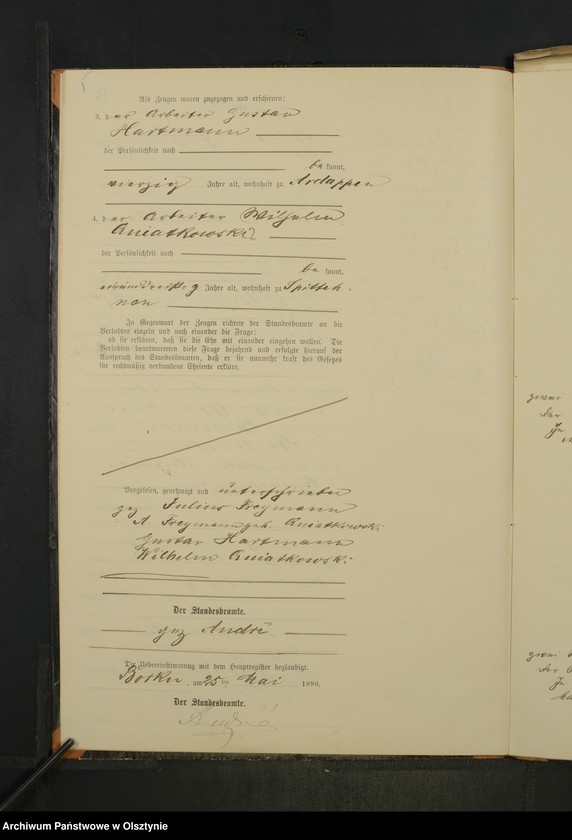 Als Zeugen waren zugezogen und erschienen:
3. der Arbeiter Gustav
Hartmann
der Persönlichkeit nach
be kannt,
vierzig Jahre alt, wohnhaft zu Ardappen
4. der Arbeiter Wilhelm
der Persönlichkeit nach
be kannt,
Jahre alt, wohnhaft zu Spitteh-
nen
In Gegenwart der Zeugen richtete der Standesbeamte an die
Verlobten einzeln und nach einander die Frage:
ob sie erklären, daß sie die Ehe mit einander eingehen wollen. Die
Verlobten beantworteten diese Frage bejahend und erfolgte hierauf der
Ausspruch des Standesbeamten, daß er sie nunmehr kraft des Gesetzes
für rechtmäßig verbundene Eheleute erkläre.
Vorgelesen, genehmigt und unterschrieben
gez Julius Freymann
A Freymann geb.
Gustav Hartmann
Wilhelm
Der Standesbeamte.
gez André
Die Uebereinstimmung mit dem Hauptregister beglaubigt.
Borken, am 25 ten Mai 1896.
Der Standesbeamte.
André
zwei
der
zwei
der
Archiwum Państwowe w Olsztynie